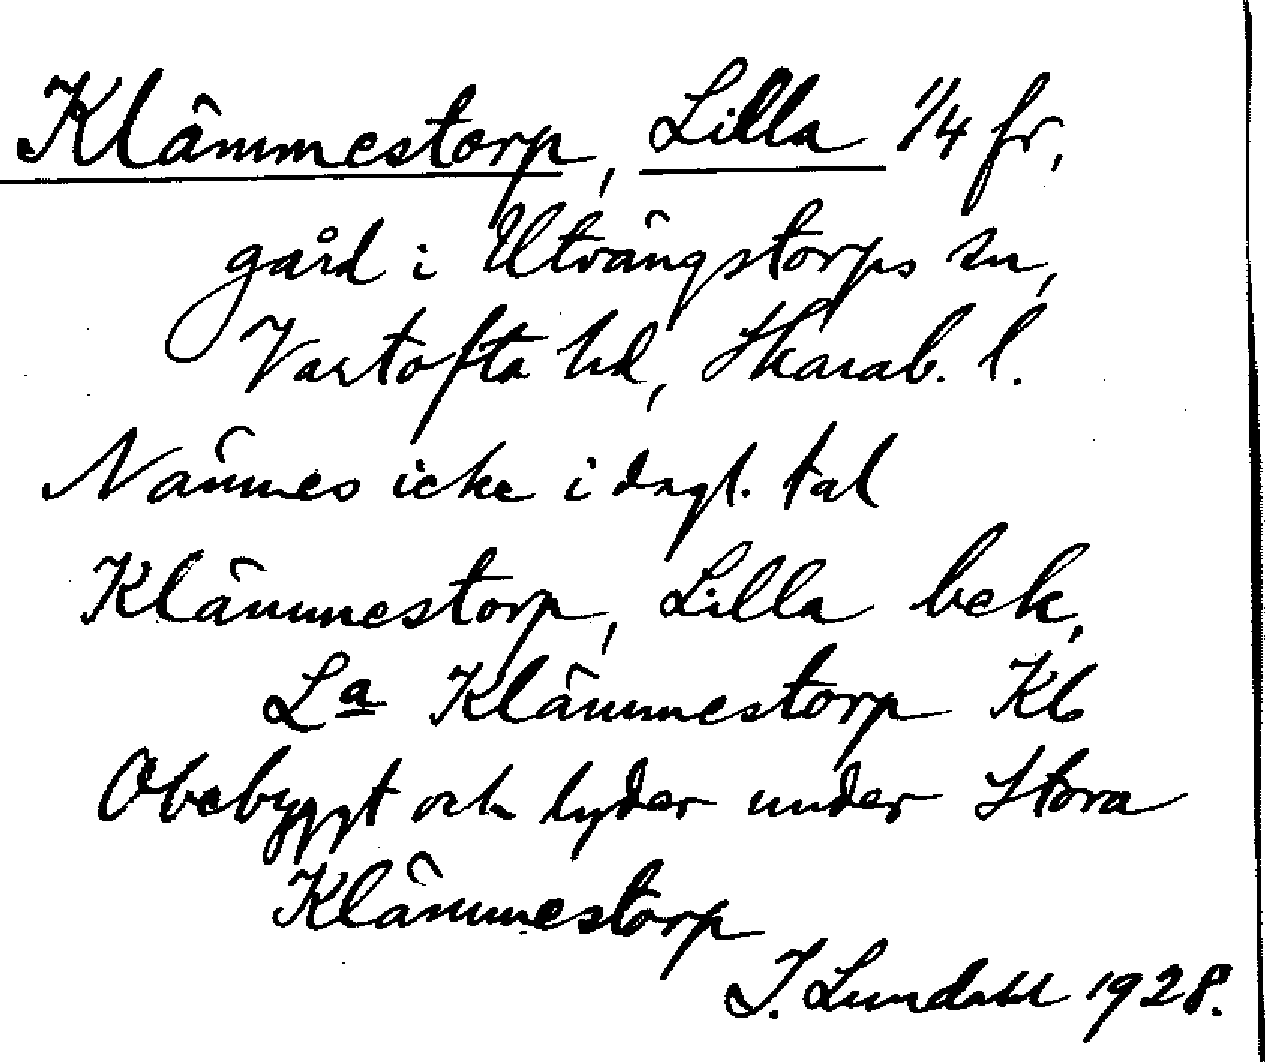 Klämmestorp, Lilla 1/4 fr,
gård i Utvängstorps sn,
Vartofta hd, Skarab. l.
Nämnes icke i dagl. tal
Klämmestorp, Lilla bek,
La Klämmestorp Kb
Obebyggt och lyder under Stora
Klämmestorp
I. Lundahl 1928.